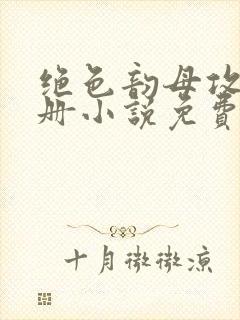 绝色韵母攻
册小说免費
十月微微凉